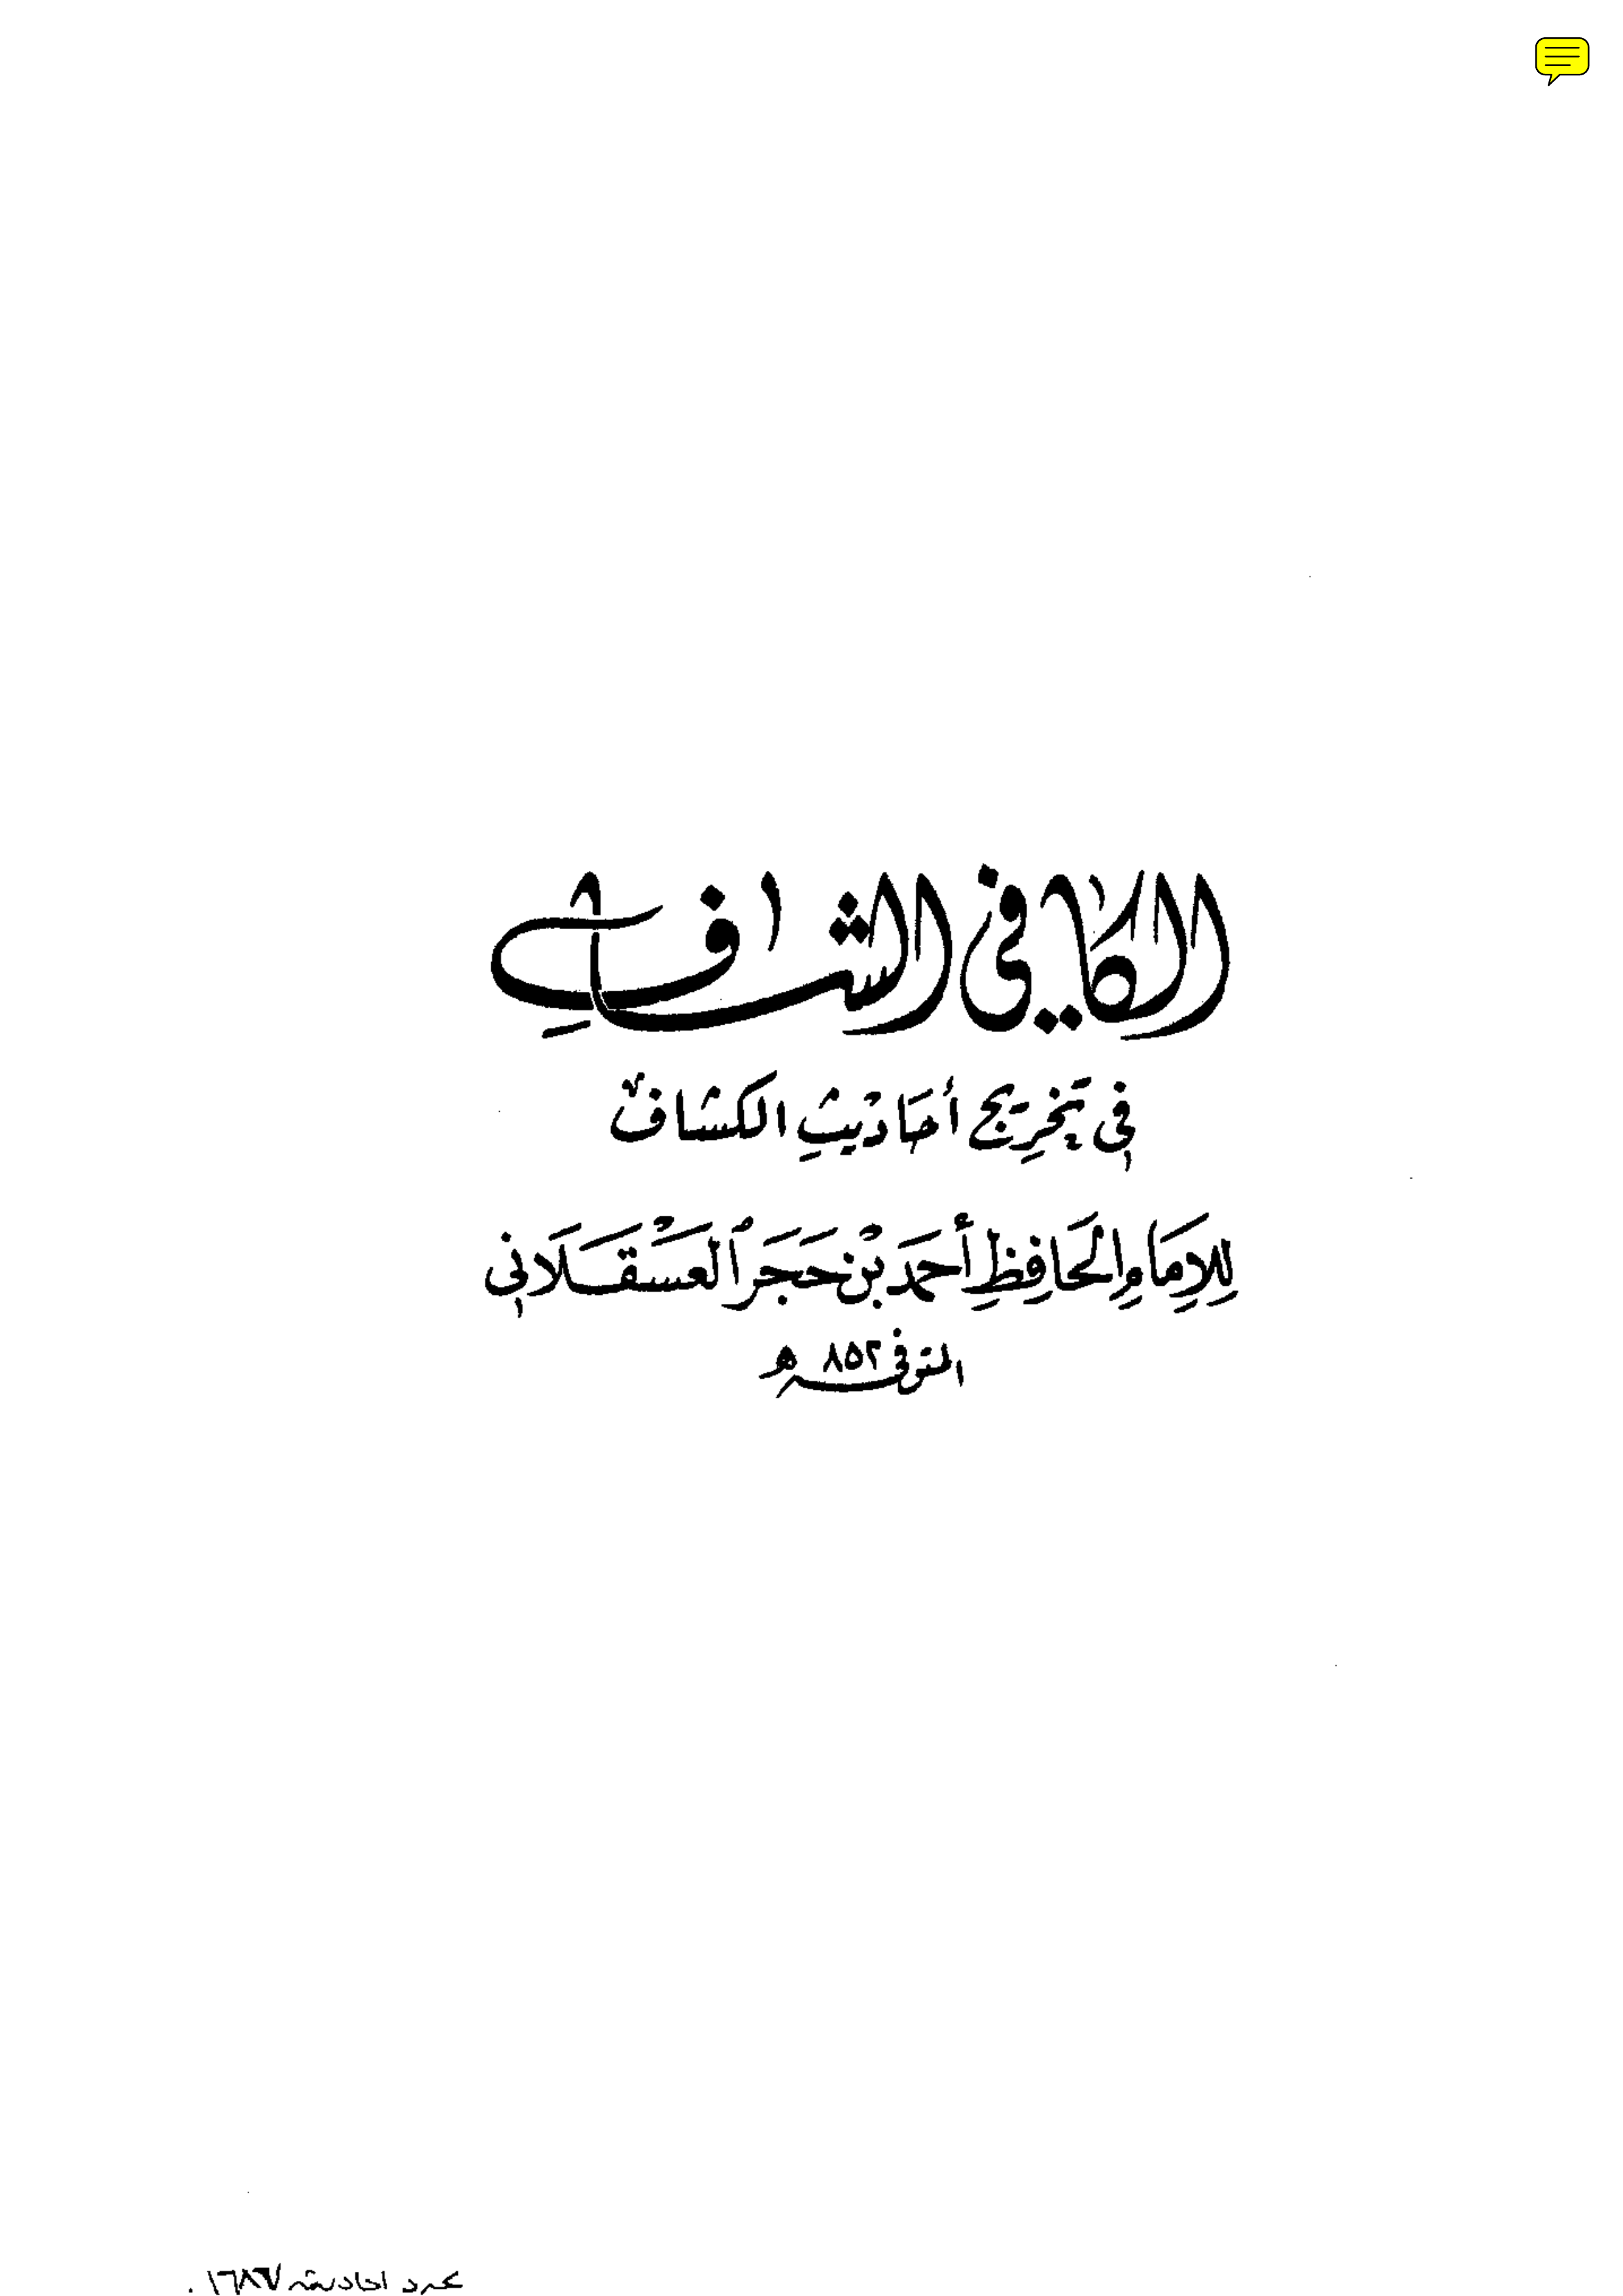 الكافي الشاف
في تَخرِيج أحَاديثِ الكشاف
لِلإِمَامِ الحَافِظِ أحمَد بْن حَجَر العَسْقَلَاني
المتوفى ٨٥٢ هـ
عدد أحاديثه ١٦٨٧.